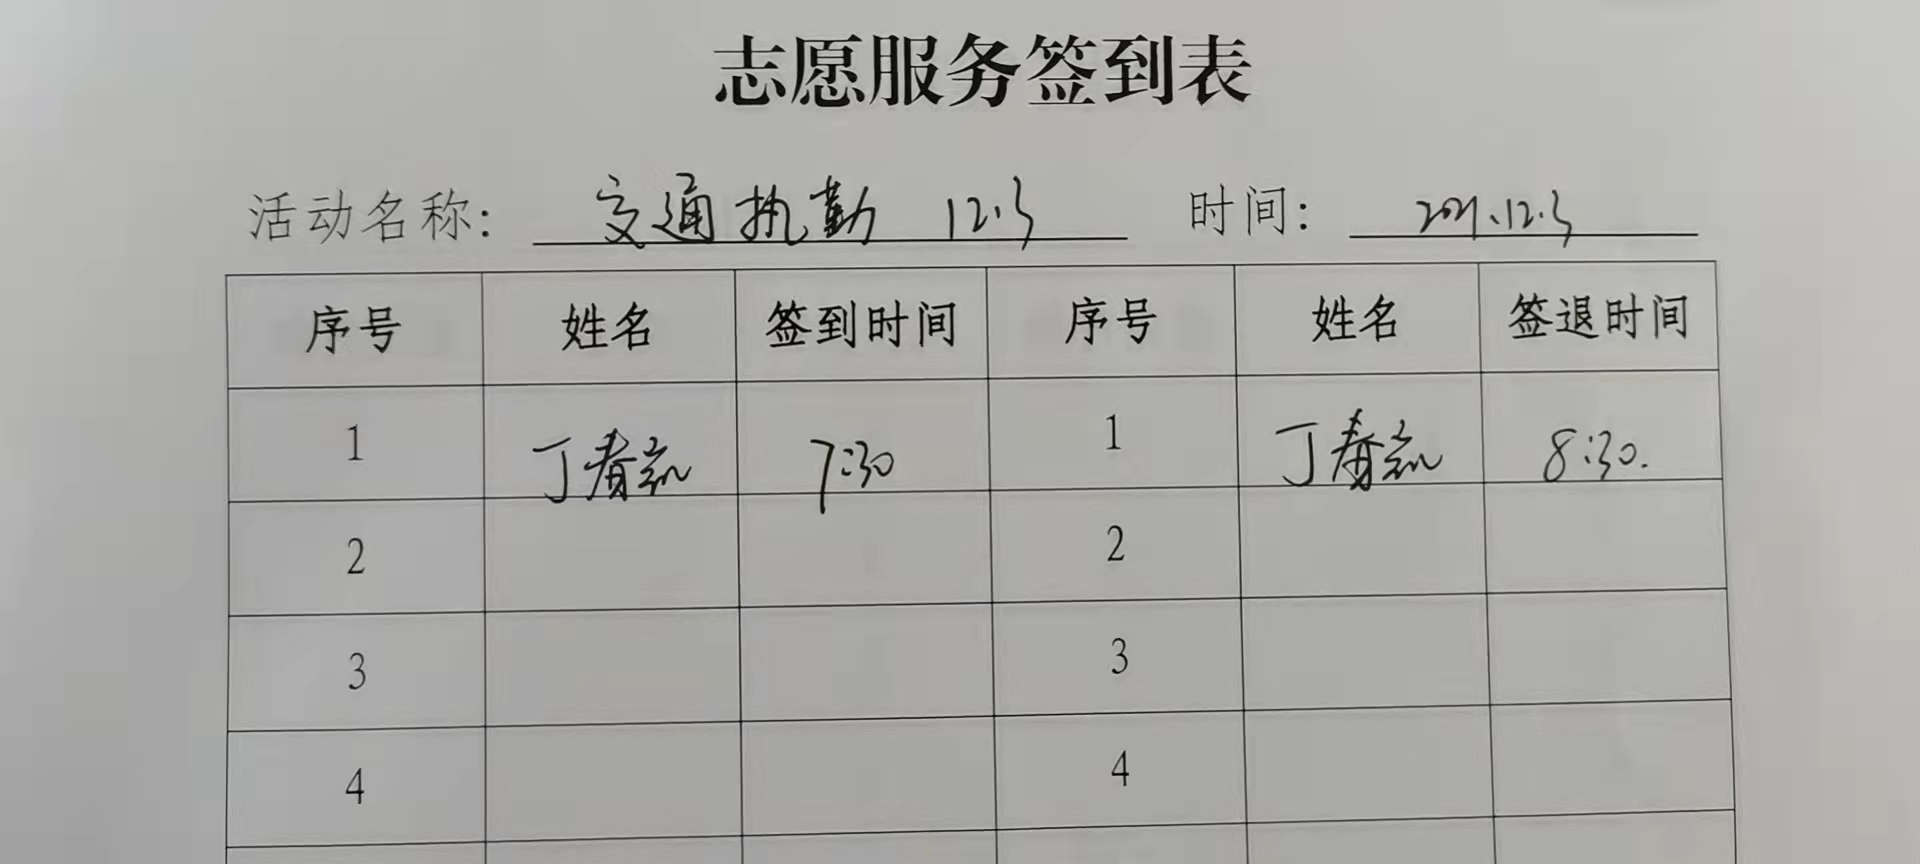 志愿服务签到表
活动名称: 交通执勤 12.3 时间: 2021.12.3
序号 姓名 签到时间 序号 姓名 签退时间
1 丁春 7:30 1 丁春 8:30.
2 2
3 3
4 4